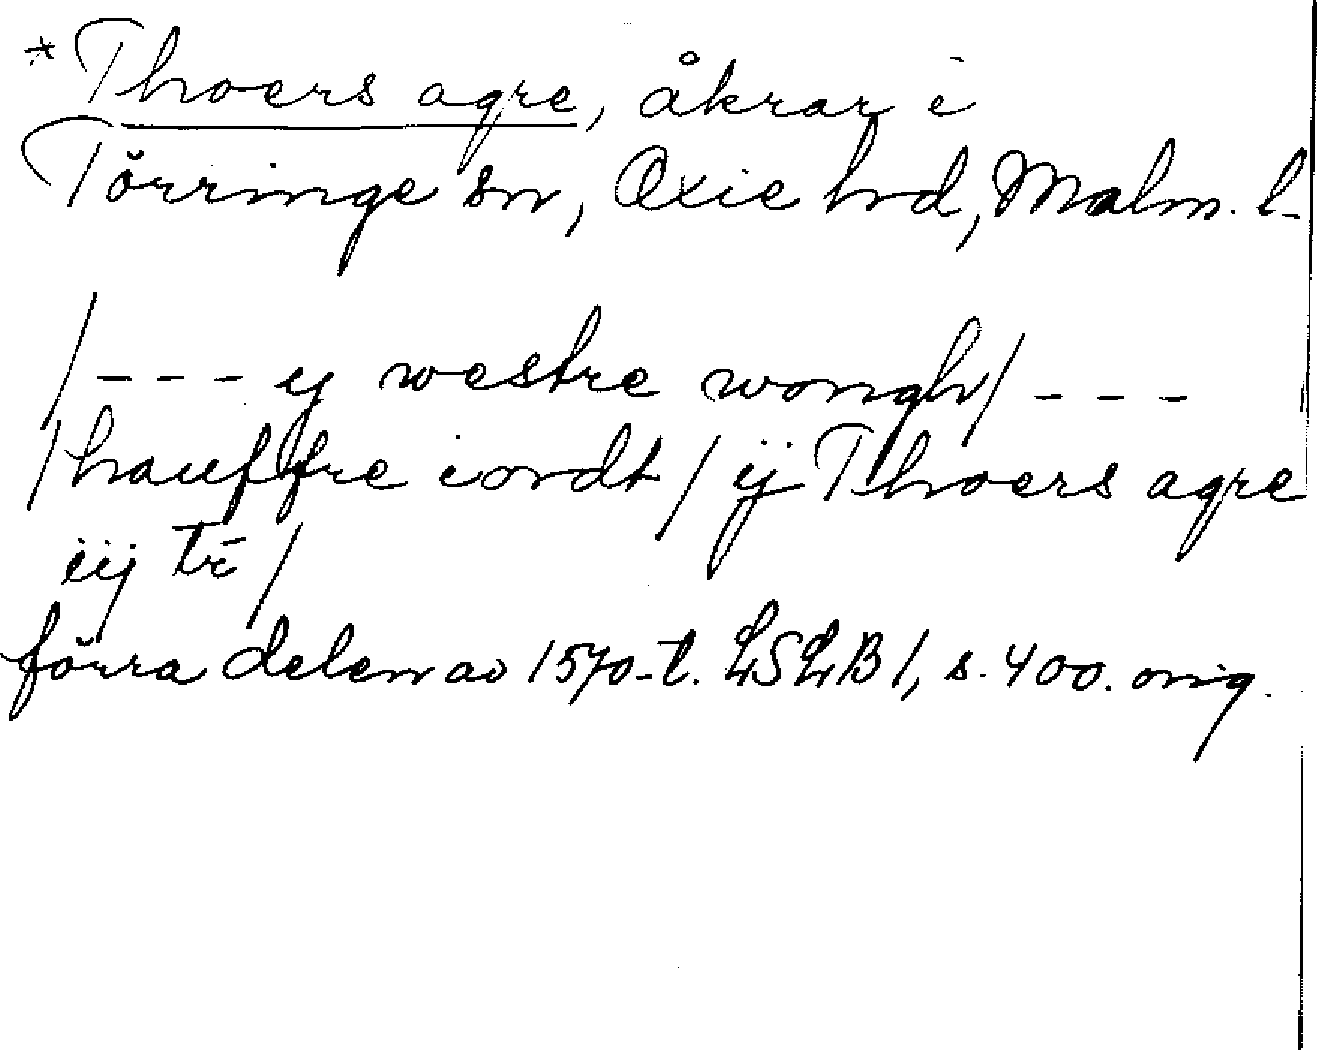 *Thoers agre, åkrar i
Törringe sn, Oxie hrd, Malm. l.
/--- ij westre wongh/ ---
/hauffre iordt / ij Thoers agre
iij tr /
förra delen av 1570-t. LSLB 1, s. 400. orig.